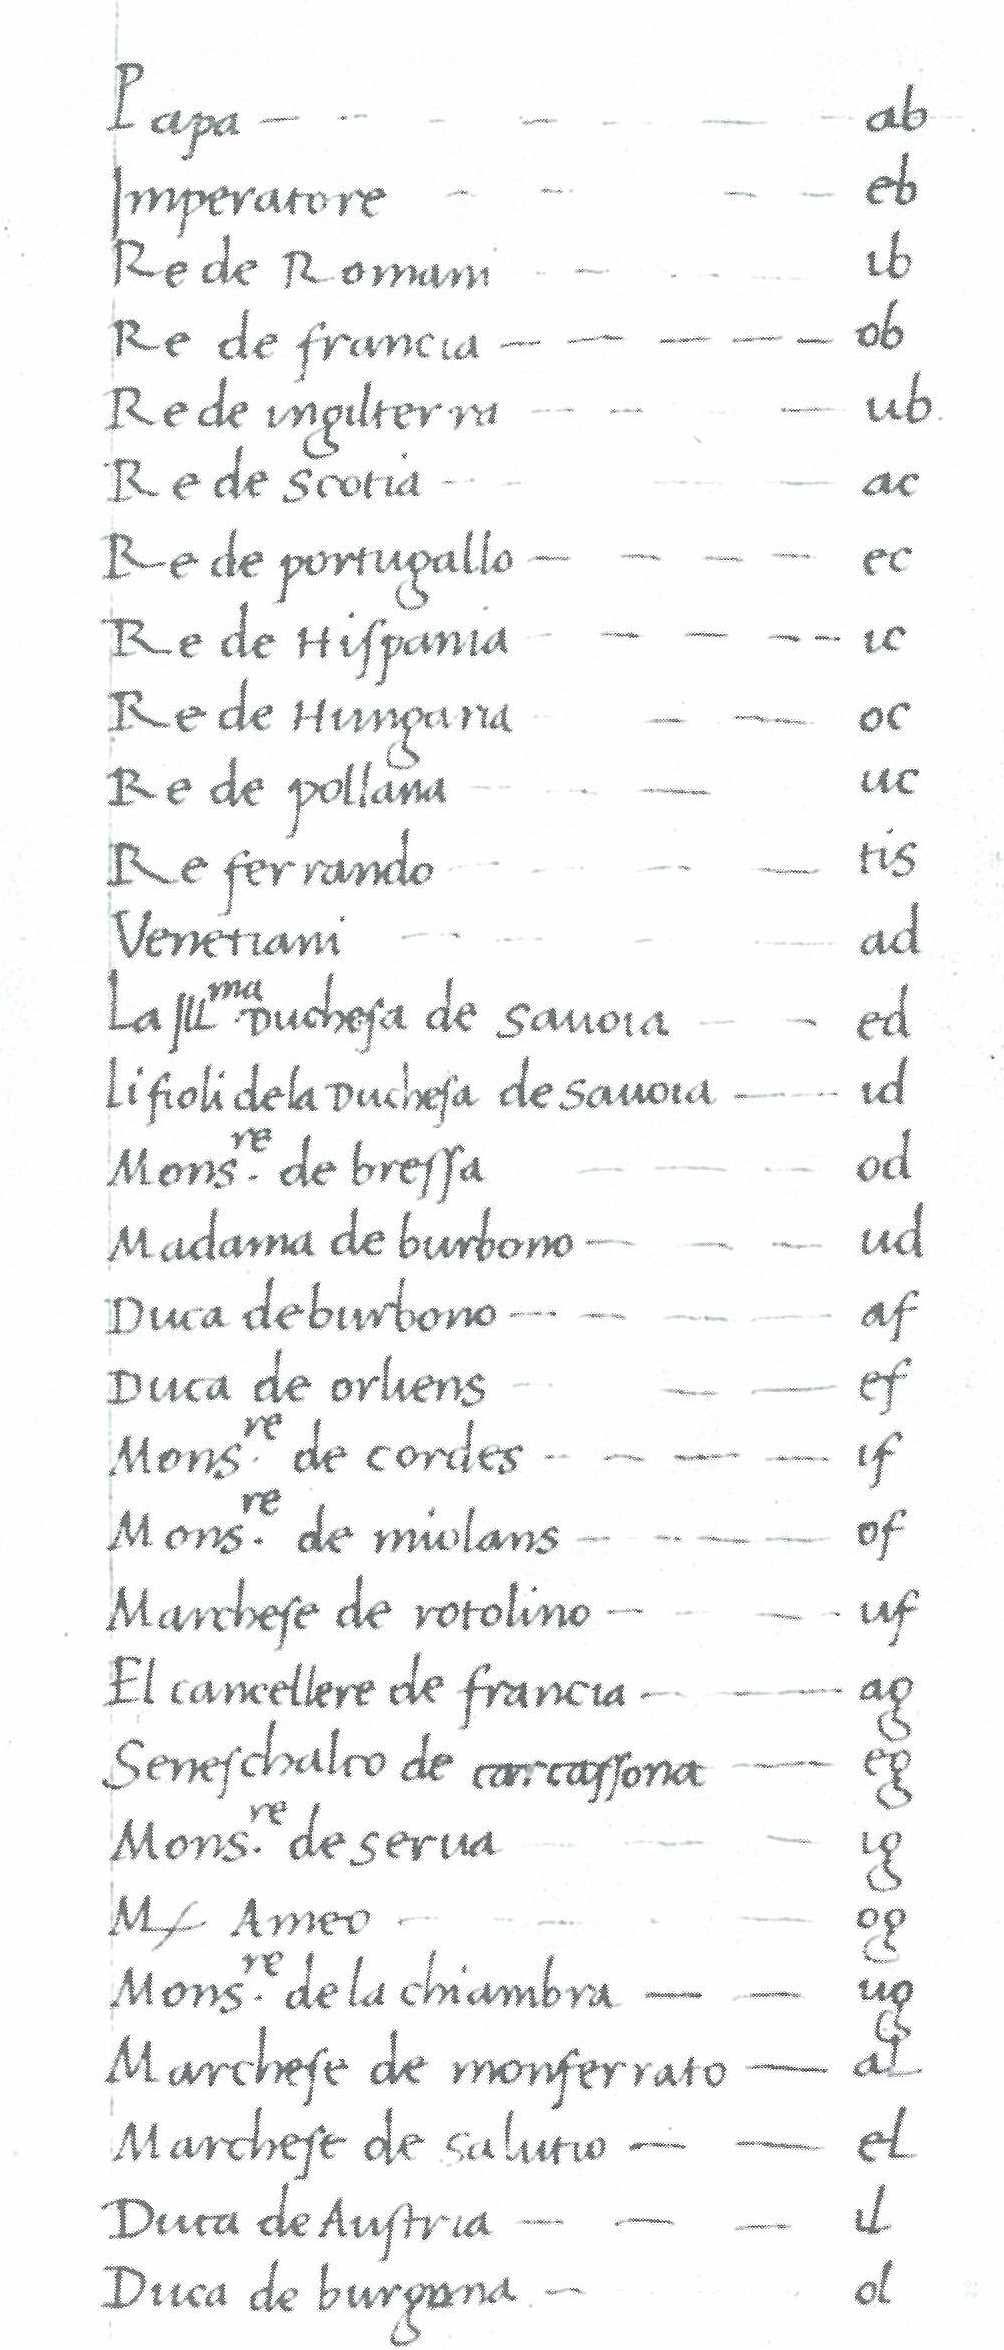 Papa — ab
Imperatore — eb
Re de Romani — ib
Re de francia — ob
Re de ingilterra — ub
Re de Scotia — ac
Re de portugallo — ec
Re de Hispania — ic
Re de Hungaria — oc
Re de pollana — uc
Re ferrando — tis
Venetiani — ad
La Ill.ma Duchesa de Sauoia — ed
Li fioli de la Duchesa de Sauoia — id
Mons.re de bressa — od
Madama de burbono — ud
Duca de burbono — af
Duca de orliens — ef
Mons.re de cordes — if
Mons.re de miolans — of
Marchese de rotolino — uf
El cancellere de francia — ag
Seneschalco de carcassona — eg
Mons.re de serua — ig
M Ameo — og
Mons.re de la chiambra — ug
Marchese de monferrato — al
Marchese de salutio — el
Duca de Austria — il
Duca de — ol